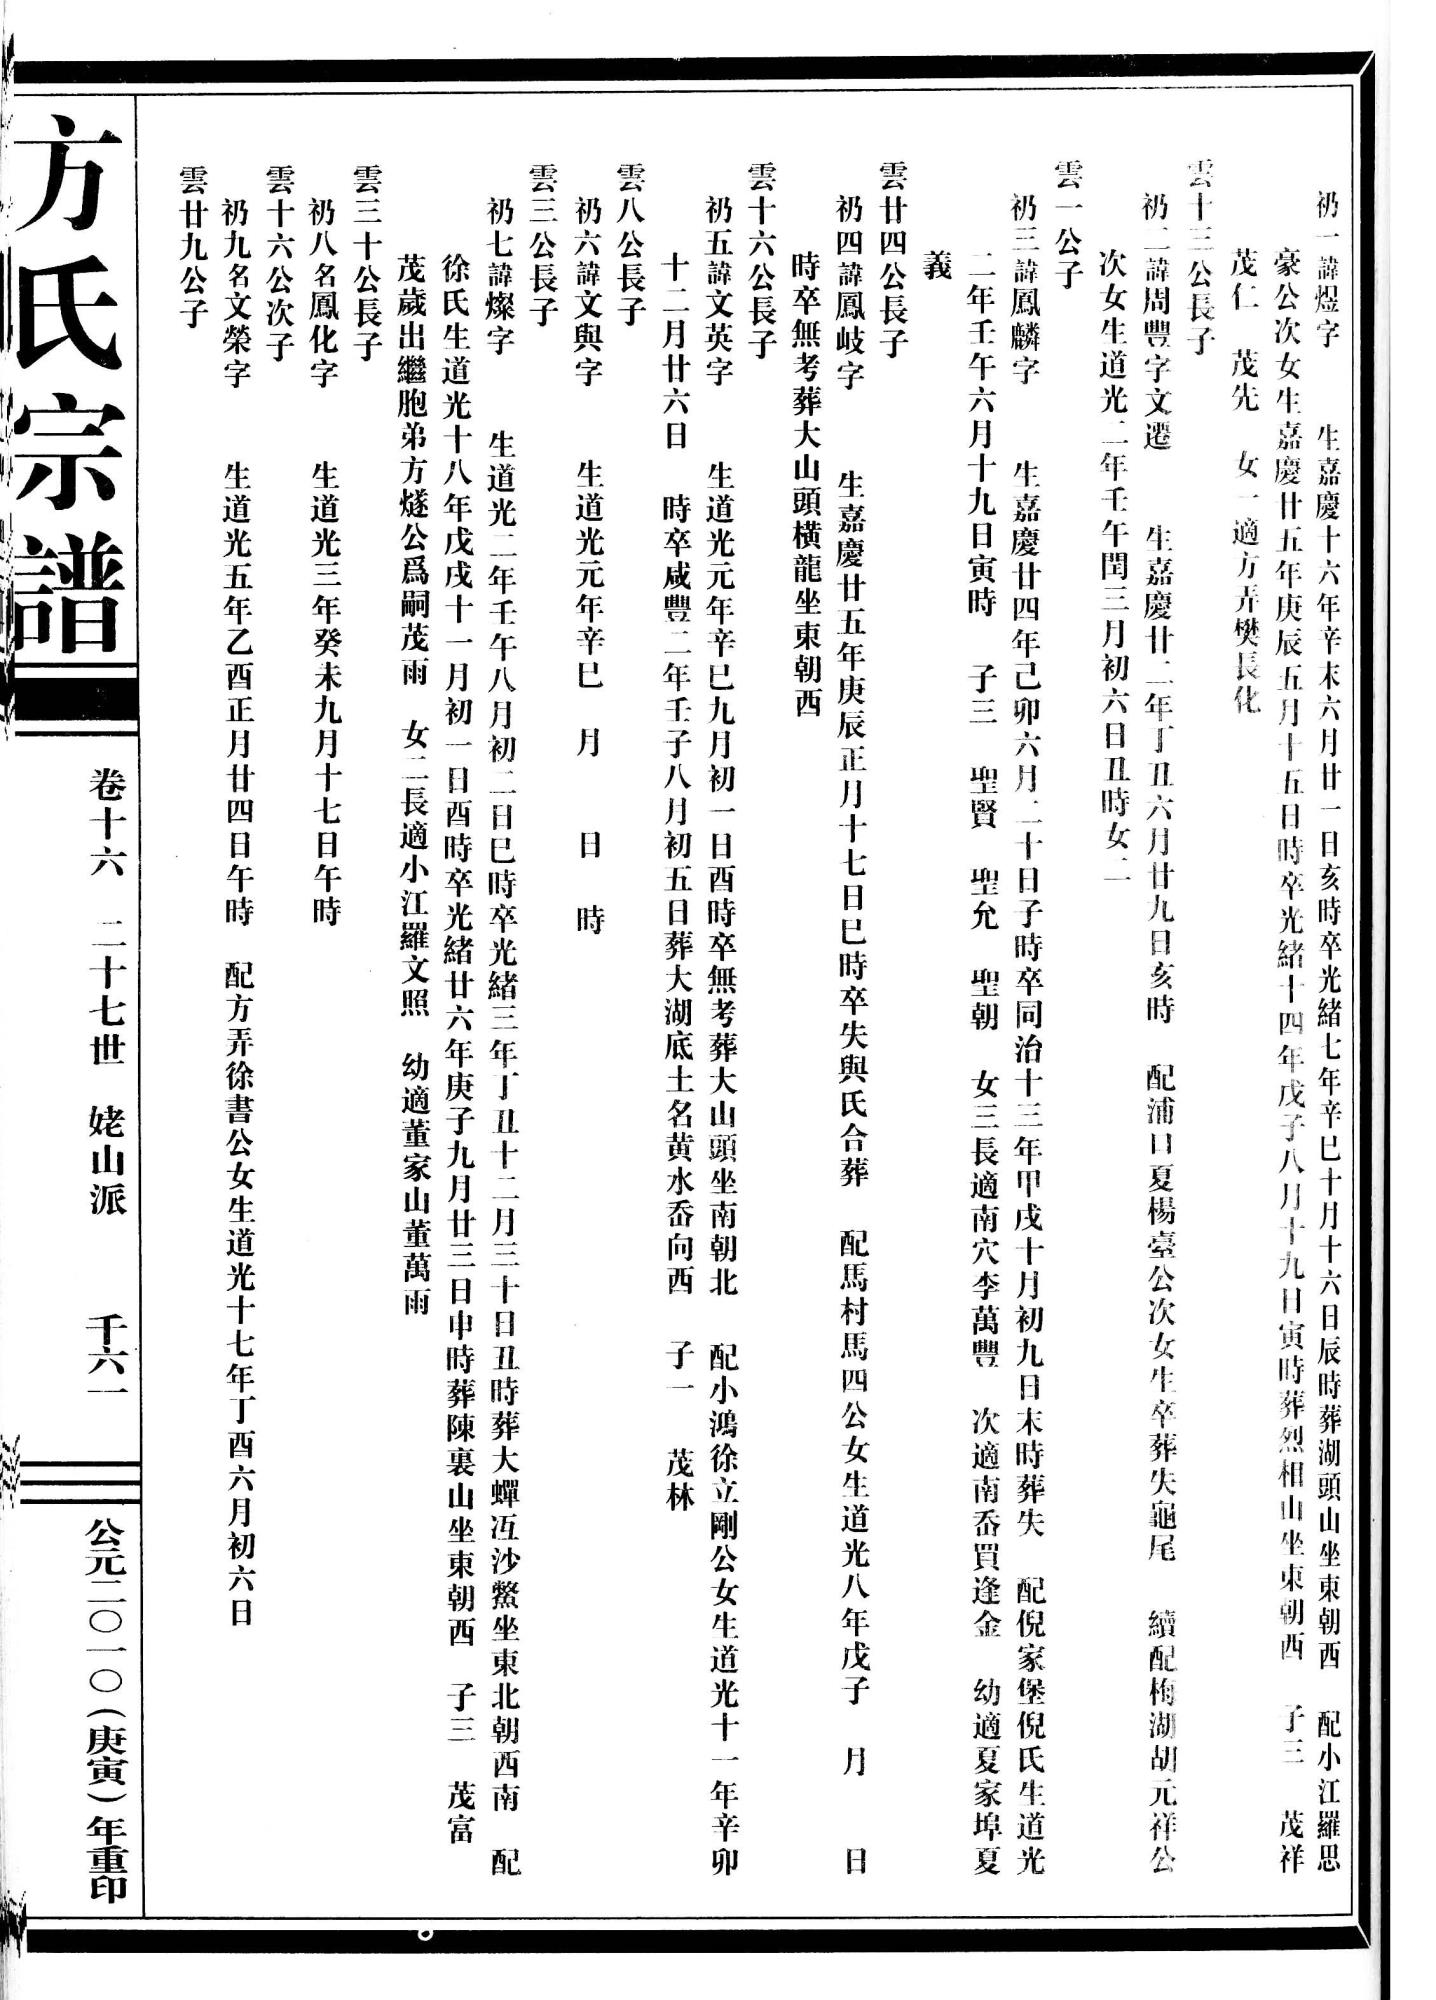 礽一諱煜字　生嘉慶十六年辛末六月廿一日亥時卒光緒七年辛巳十月十六日辰時葬湖頭山坐東朝西　配小江羅思
豪公次女生嘉慶廿五年庚辰五月十五日時卒光緒十四年戊子八月十九日寅時葬烈相山坐東朝西　子三　茂祥
茂仁　茂先　女一適方弄樊長化
雲十三公長子
礽二諱周豐字文遷　生嘉慶廿二年丁丑六月廿九日亥時　配浦口夏楊臺公次女生卒葬失龜尾　續配梅湖胡元祥公
次女生道光二年壬午閏三月初六日丑時女二
雲一公子
礽三諱鳳麟字　生嘉慶廿四年己卯六月二十日子時卒同治十三年甲戌十月初九日末時葬失　配倪家堡倪氏生道光
二年壬午六月十九日寅時　子三　聖賢　聖允　聖朝　女三長適南穴李萬豐　次適南岙買逢金　幼適夏家埠夏
義
雲廿四公長子
礽四諱鳳岐字　生嘉慶廿五年庚辰正月十七日巳時卒失與氏合葬　配馬村馬四公女生道光八年戊子　月　日
時卒無考葬大山頭橫龍坐東朝西
雲十六公長子
礽五諱文英字　生道光元年辛巳九月初一日酉時卒無考葬大山頭坐南朝北　配小鴻徐立剛公女生道光十一年辛卯
十二月廿六日　時卒咸豐二年壬子八月初五日葬大湖底土名黃水岙向西　子一　茂林
雲八公長子
礽六諱文與字　生道光元年辛巳　月　日　時
雲三公長子
礽七諱燦字　生道光二年壬午八月初二日巳時卒光緒三年丁丑十二月三十日丑時葬大蟬冱沙鱉坐東北朝西南　配
徐氏生道光十八年戊戌十一月初一日酉時卒光緒廿六年庚子九月廿三日申時葬陳裏山坐東朝西　子三　茂富
茂歲出繼胞弟方燧公爲嗣茂雨　女二長適小江羅文照　幼適董家山董萬雨
雲三十公長子
礽八名鳳化字　生道光三年癸未九月十七日午時
雲十六公次子
礽九名文榮字　生道光五年乙酉正月廿四日午時　配方弄徐書公女生道光十七年丁酉六月初六日
雲廿九公子
方氏宗譜
卷十六　二十七世　姥山派　千六一
公元二〇一〇（庚寅）年重印